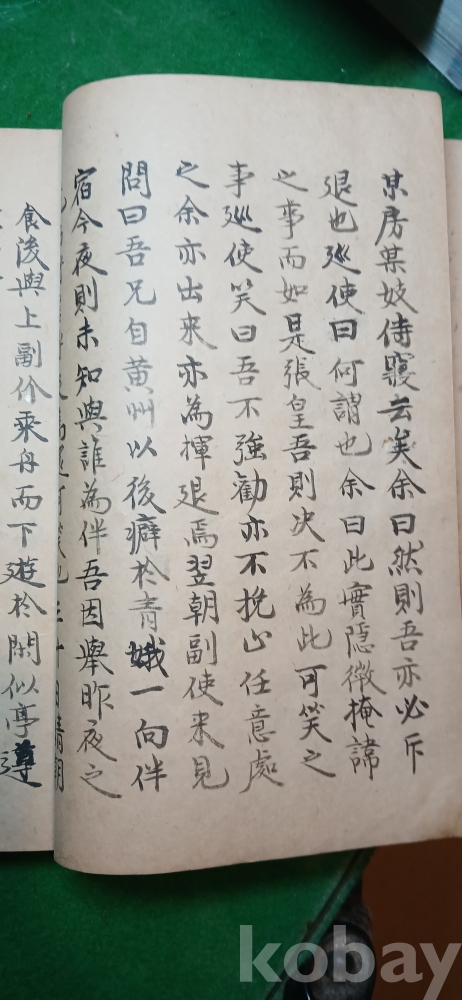 某房某妓侍寢云矣余曰然則吾亦必斥
退也巡使曰何謂也余曰此實隱微掩諱
之事而如是張皇吾則決不爲此可笑之
事巡使笑曰吾不強勸亦不挽止任意處
之余亦出來亦為揮退焉翌朝副使來見
問曰吾兄自黄州以後癖於青娥一向伴
宿今夜則未知與誰為伴吾因擧昨夜之
食後與上副价乘舟而下遊於閑似亭遵
kobay